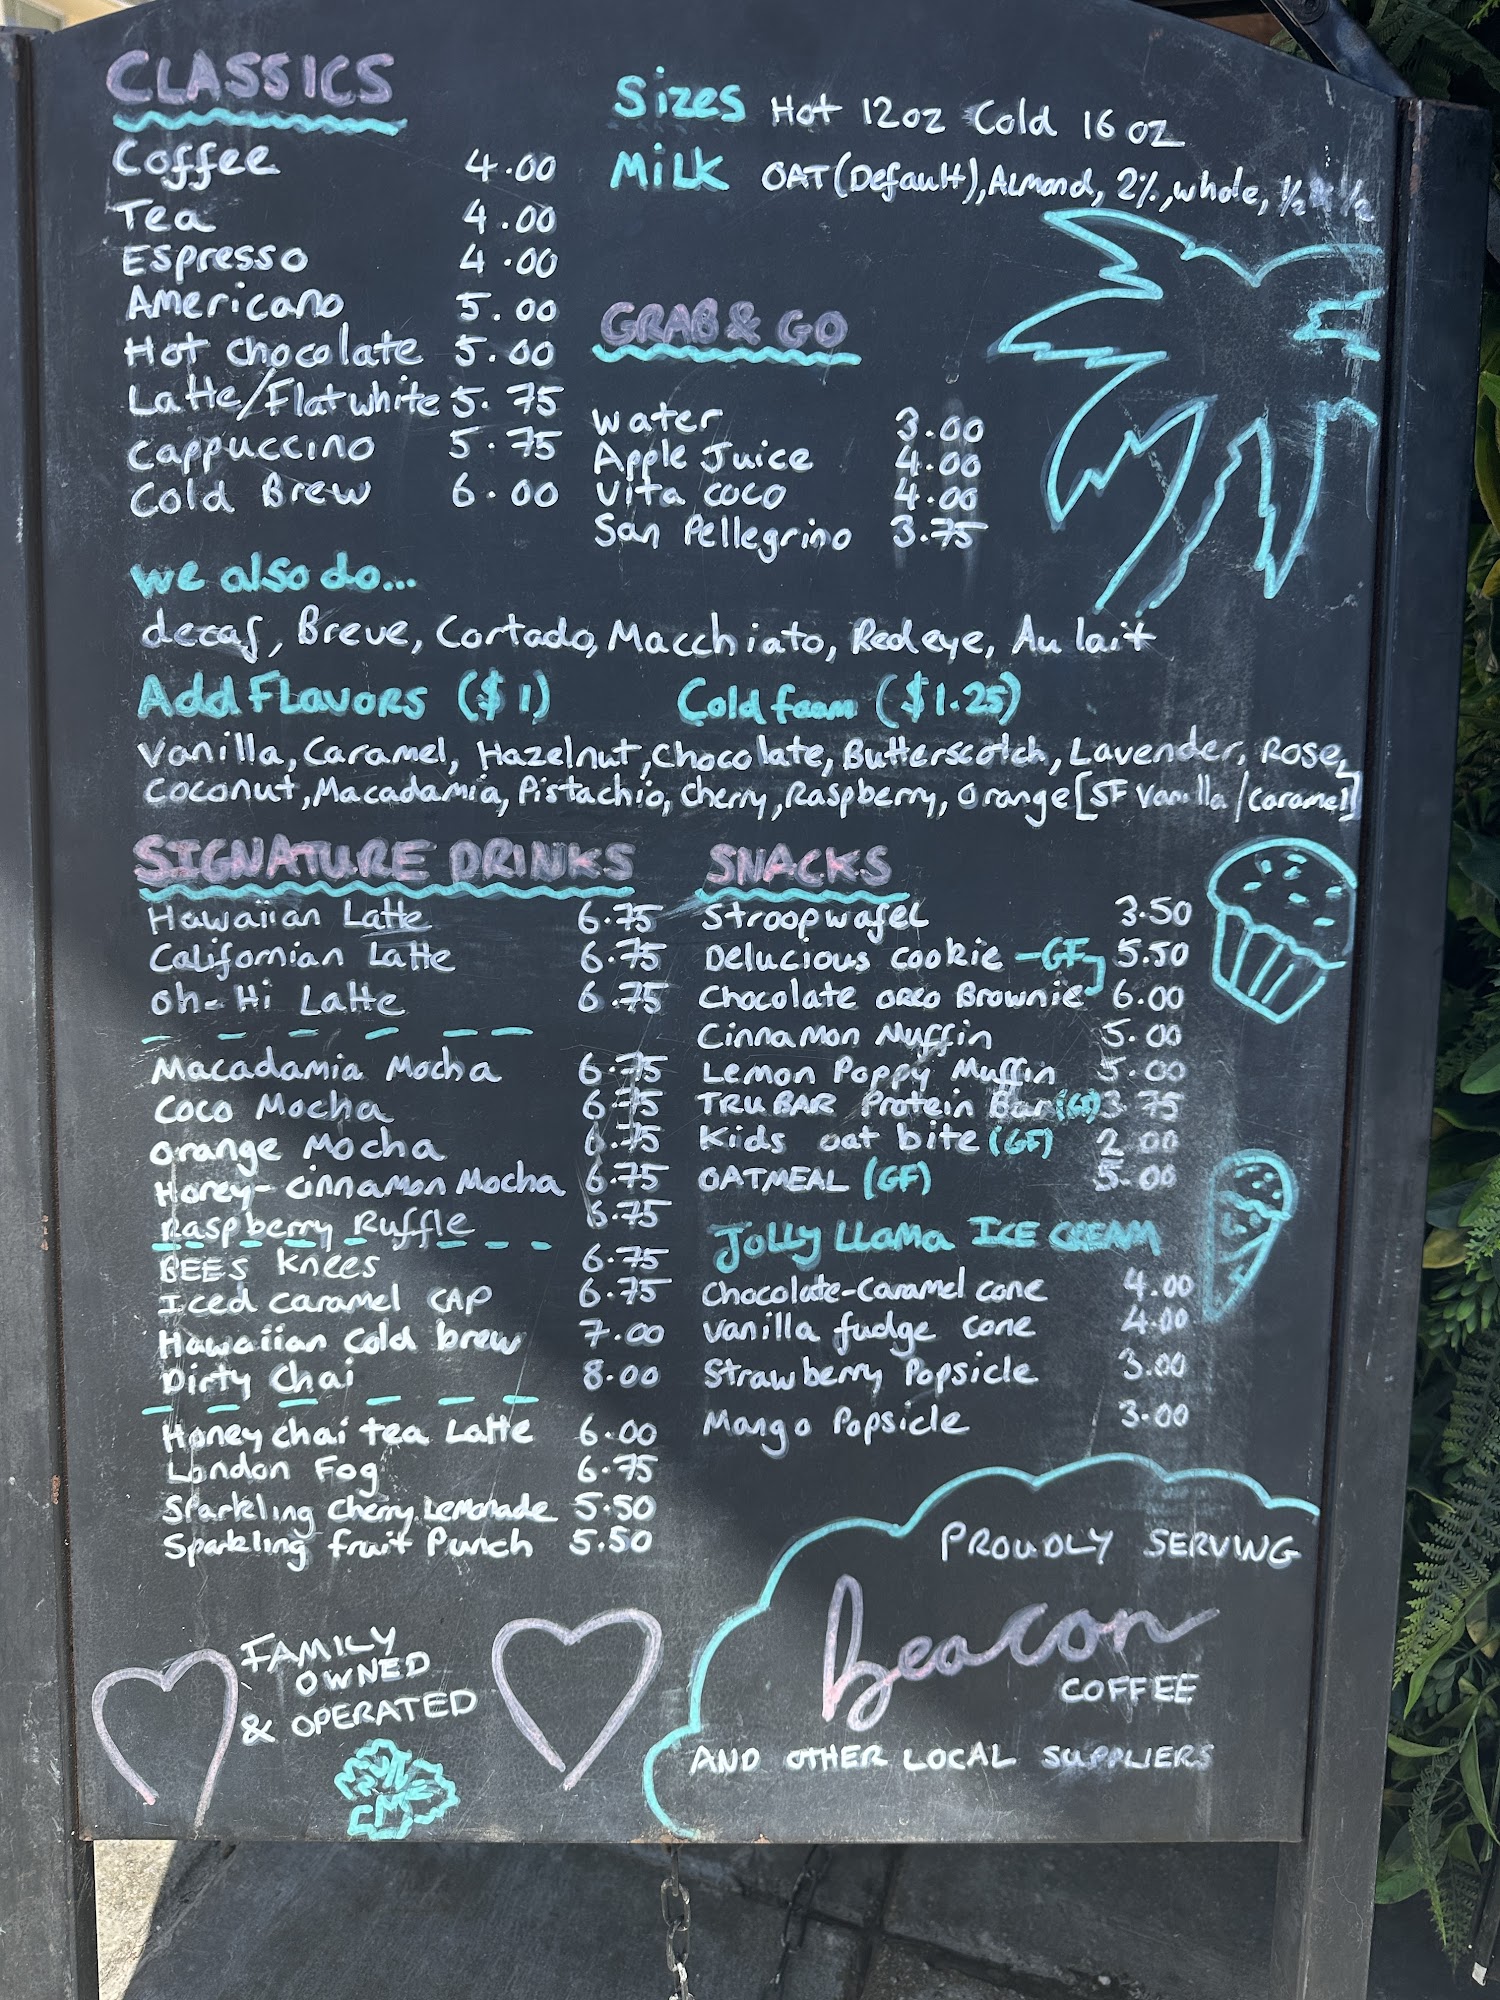 CLASSICS
Coffee 4.00
Tea 4.00
Espresso 4.00
Americano 5.00
Hot chocolate 5.00
Latte/Flatwhite 5.75
Cappuccino 5.75
Cold Brew 6.00
Sizes Hot 12oz Cold 16oz
MiLK OAT (Default), Almond, 2%, whole, ½ & ½
GRAB & GO
water 3.00
Apple Juice 4.00
Vita coco 4.00
San Pellegrino 3.75
we also do...
decaf, Breve, Cortado, Macchiato, Redeye, Au lait
Add FLavors ($1) Cold foam ($1.25)
Vanilla, Caramel, Hazelnut, Chocolate, Butterscotch, Lavender, Rose,
Coconut, Macadamia, Pistachio, cherry, Raspberry, orange [SF Vanilla/caramel]
SIGNATURE DRINKS
Hawaiian Latte 6.75
Californian Latte 6.75
oh-Hi Latte 6.75
Macadamia Mocha 6.75
Coco Mocha 6.75
orange Mocha 6.75
Honey-cinnamon Mocha 6.75
Raspberry Ruffle 6.75
BEEs knees 6.75
Iced caramel CAP 6.75
Hawaiian cold brew 7.00
Dirty Chai 8.00
Honey chai tea Latte 6.00
London Fog 6.75
Sparkling cherry Lemonade 5.50
Sparkling fruit Punch 5.50
SNACKS
Stroopwafel 3.50
Delucious cookie -GF 5.50
Chocolate oreo Brownie 6.00
Cinnamon Muffin 5.00
Lemon Poppy Muffin 5.00
TRUBAR Protein Bar (GF) 3.75
Kids oat bite (GF) 2.00
OATMEAL (GF) 5.00
Jolly LLama ICE CREAM
Chocolate-Caramel cone 4.00
Vanilla fudge cone 4.00
Strawberry Popsicle 3.00
Mango Popsicle 3.00
FAMILY
OWNED
& OPERATED
PROUDLY SERVING
beacon
COFFEE
AND OTHER LOCAL SUPPLIERS